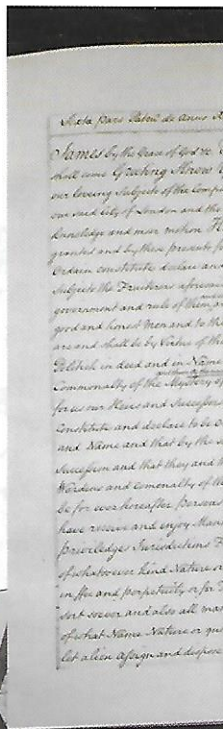 Sexta pars Patent de Anno R
James by the Grace of God &c. T
shall come Greeting Know
our loveing Subjects of the Comp
our said City of London and the
knowledge and meer motion H
granted and by these presents f
Ordain constitute declare an
Subjects the Fruiterers aforesa
government and rule of them
good and honest Men and to th
are and shall be by Virtue of th
Politick in deed and in Name
Commonalty of the Mystery of
for us our Heirs and Successors
Constitute and declare to be o
and Name and that by the s
Succession and that they and t
Wardens and comonalty of th
be for ever hereafter Persons
have receive and enjoy Mann
priviledges Jurisdictions F
of whatsoever kind Nature or
in ffee and perpetuity or for T
sort soever and also all man
of what Name Nature or qu
let alien assign and dispose